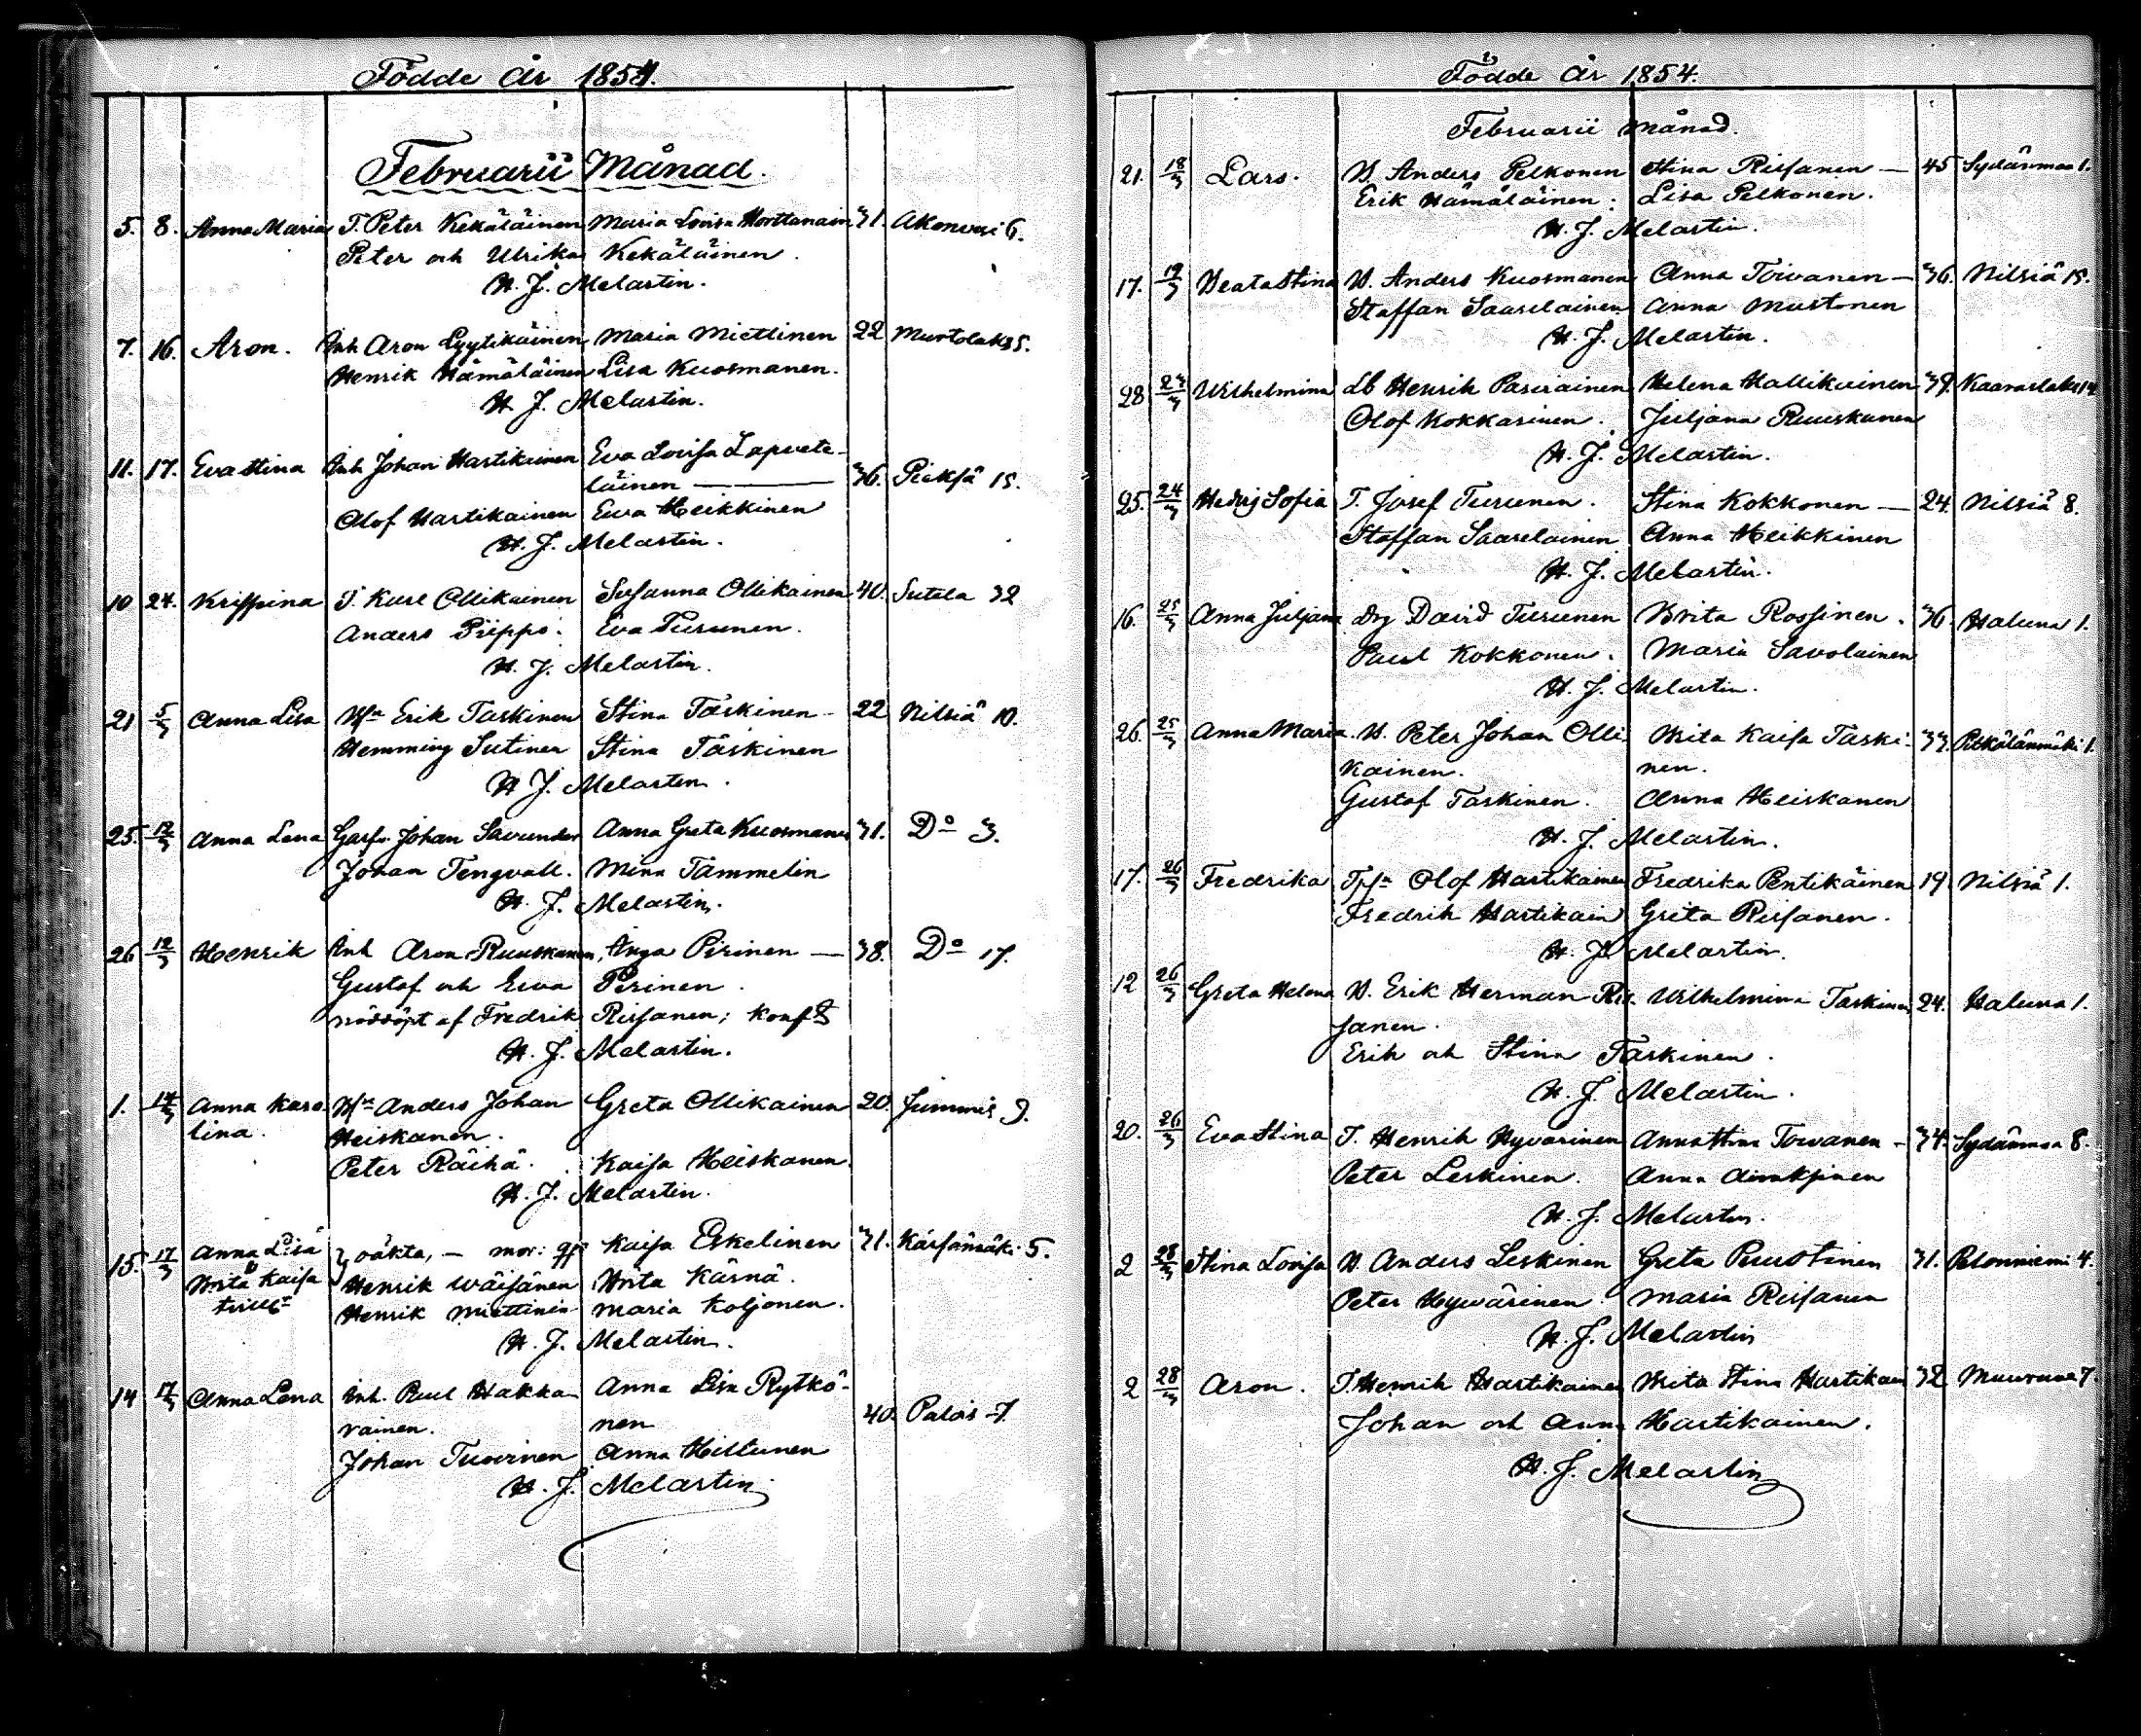 Födde År 1854.
Februarii Månad.
5. 8. Anna Maria T. Peter Kekäläinen Maria Lovisa Horttanain 31. Akonvesi 6.
Peter och Ulrika Kekäläinen.
H. J. Melartin.
7. 16. Aron. Inh Aron Lyytikäinen Maria Miettinen 22 Murtolaks 5.
Henrik Hämäläinen Lisa Kuosmanen.
H. J. Melartin.
11. 17. Eva Stina Inh Johan Hartikainen Eva Lovisa Lapvete-
läinen — 36. Pieksä 15.
Olof Hartikainen Eva Heikkinen
H. J. Melartin.
10 24. Krispina T. Karl Ollikainen Susanna Ollikainen 40. Sutela 32
Anders Piippo. Eva Turunen.
H. J. Melartin.
21 5/3 Anna Lisa Bsn Erik Taskinen Stina Taskinen – 22 Nilsiä 10.
Hemming Sutinen Stina Taskinen
H. J. Melartin.
25. 12/3 Anna Lena Garfv. Johan Savander Anna Greta Kuosmanen 31. Do 3.
Johan Tengvall. Mina Tammelin
H. J. Melartin.
26 12/3 Henrik Inh Aron Ruuskanen, Inga Pirinen — 38. Do 17.
Gustaf och Eva Pirinen.
nöddöpt af Fredrik Rissanen; konf
H. J. Melartin.
1. 14/3 Anna Karo- Bsn Anders Johan Greta Ollikainen 20. Jummis 9.
lina. Heiskanen.
Peter Räihä. Kaisa Heiskanen.
H. J. Melartin.
15. 17/3 Anna Lisa oäkta, — mor: Kaisa Eskelinen 31. Kärsämäki 5.
Brita Kaisa Henrik Wäisänen Brita Kärnä.
Henrik Miettinen Maria Koljonen.
H. J. Melartin.
14 17/3 Anna Lena Inh. Paul Hakka- Anna Lisa Rytkö-
rainen. nen 40. Palois 7.
Johan Tuovinen Anna Hiltunen
H. J. Melartin
Födde År 1854.
Februarii Månad.
21. 18/3 Lars. B. Anders Pelkonen Stina Rissanen — 45 Sydänmaa 1.
Erik Hämäläinen. Lisa Pelkonen.
H. J. Melartin.
17. 19/3 Beata Stina B. Anders Kuosmanen Anna Toivanen — 36. Nilsiä 15.
Staffan Saarelainen Anna Mustonen
H. J. Melartin.
28 23/3 Wilhelmina Lb Henrik Pasurainen Helena Hallikainen 39. Kaavaslaks 14
Olof Kokkarinen. Juljana Ruuskanen
H. J. Melartin.
25. 24/3 Hedvig Sofia T. Josef Turunen. Stina Kokkonen — 24. Nilsiä 8.
Staffan Saarelainen Anna Heikkinen
H. J. Melartin.
16. 25/3 Anna Juljana Drg David Turunen Brita Rossinen. 36. Haluna 1.
Paul Kokkonen. Maria Savolainen
H. J. Melartin.
26. 25/3 Anna Maria. B. Peter Johan Olli- Brita Kaisa Taski- 33. Pelkälänmäki 1.
kainen. nen.
Gustaf Taskinen. Anna Heiskanen
H. J. Melartin.
17. 26/3 Fredrika Tpsn Olof Hartikainen Fredrika Pentikäinen 19 Nilsiä 1.
Fredrik Hartikain Greta Rissanen.
H. J. Melartin.
12 26/3 Greta Helena B. Erik Herman Ris- Wilhelmina Taskinen 24. Haluna 1.
sanen.
Erik och Stina Taskinen.
H. J. Melartin.
20. 26/3 Eva Stina T. Henrik Hyvärinen Anna Stina Toivanen – 34. Sydänmaa 8.
Peter Leskinen. Anna
H. J. Melartin.
2 28/3 Stina Lovisa B. Anders Leskinen Greta Puustinen 31. Pelonniemi 4.
Peter Hyvärinen. Maria Rissanen
H. J. Melartin
2 28/3 Aron. T. Henrik Hartikainen Brita Stina Hartikain 32 Muuruvesi 7.
Johan och Anna Hartikainen.
H. J. Melartin